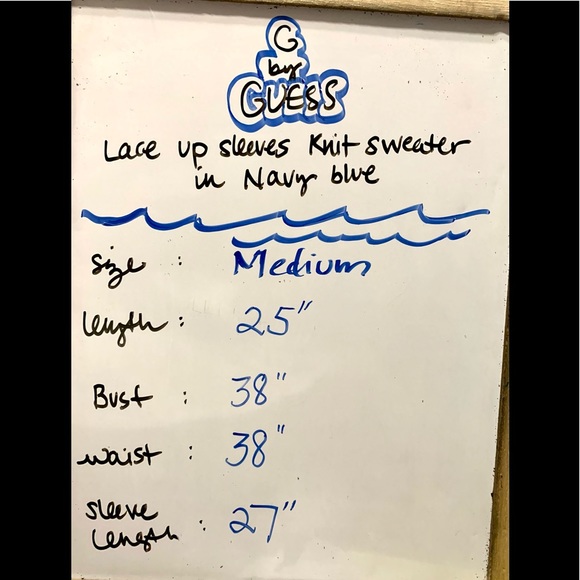 G
by
GUESS
Lace up sleeves Knit sweater
in Navy blue
Size : Medium
length : 25"
Bust : 38"
waist : 38"
sleeve
length : 27"